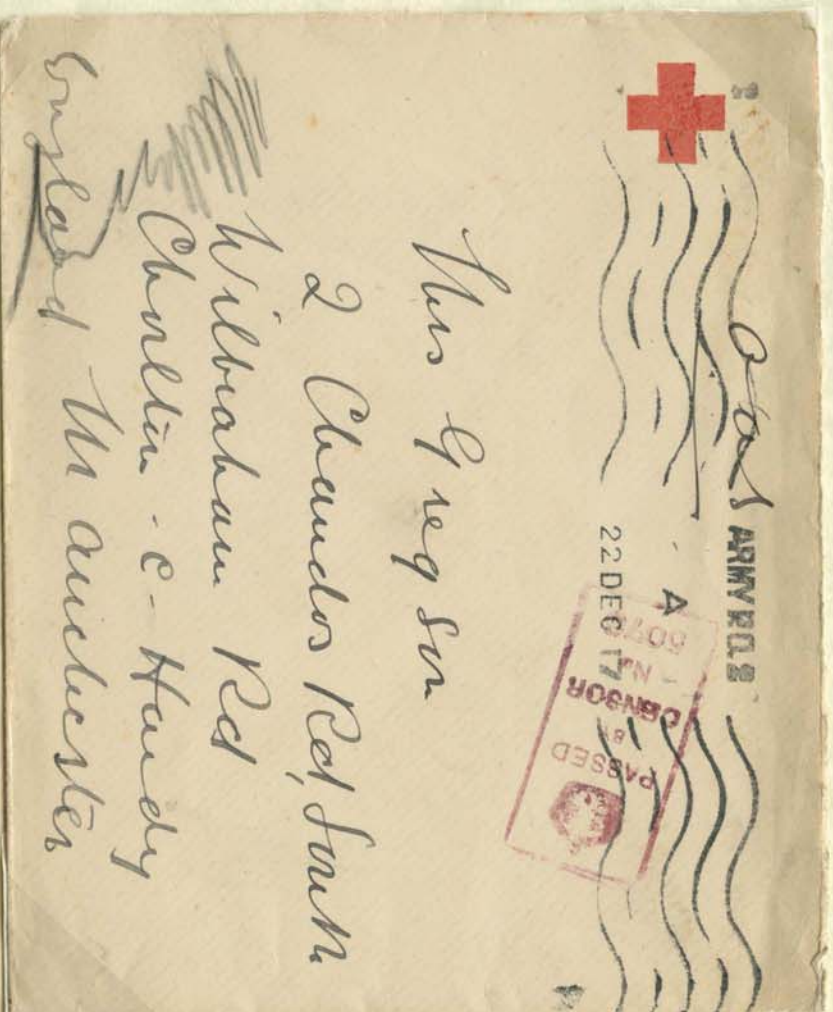 OAS
ARMY P.O. 2
A
22 DEC 17
PASSED
BY
CENSOR
Mrs Gregson
2 Chandos Rd, South
Wilbraham Rd
Chorlton - c - Hardy
Manchester
England